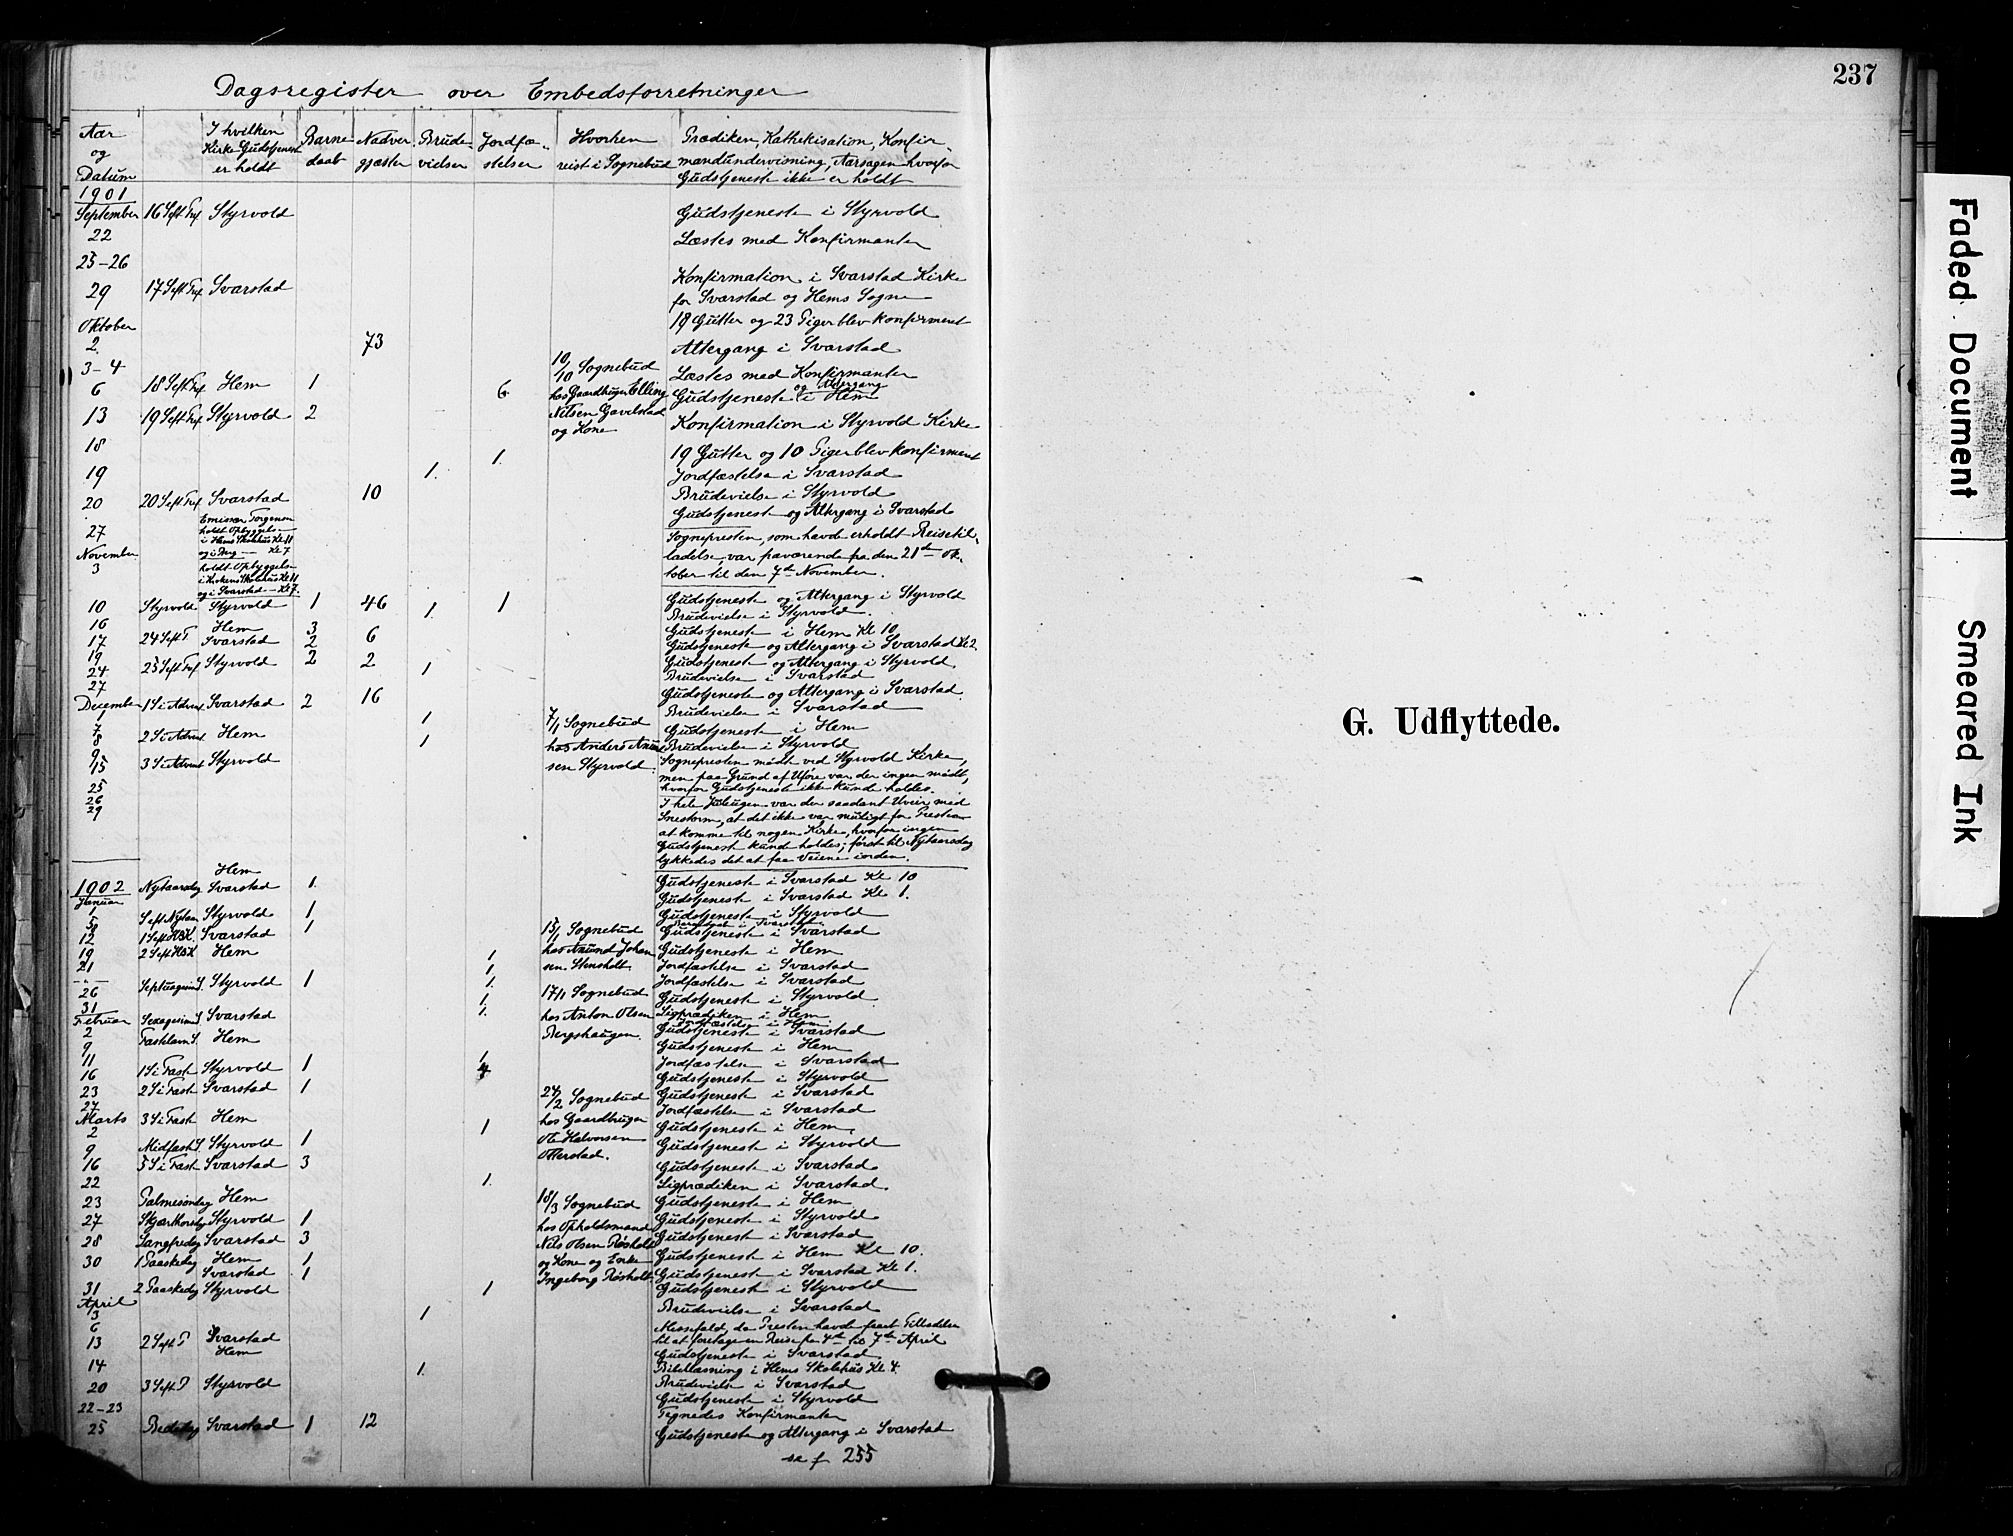 Dagsregister over Embedsforretninger
Aar og Datum | | I hvilken Kirke Gudstjenest er holdt | Barne daab | Nadver gjæster | Brude vielser | Jordfæ- stelser | Hvorhen reist i Sognebud | Prædiken, Kathekisation, Konfir- mandundervisning, Aarsagen hvorfor Gudstjeneste ikke er holdt
1901
September 22 16 S eft Tref Styrvold Gudstjeneste i Styrvold
25-26 Læstes med Konfirmanter
29 17 S eft Tref Svarstad Konfirmation i Svarstad Kirke
for Svarstad og Hems Sogne
18 Gutter og 23 Piger blev konfirmeret
Oktober
2. 73 Altergang i Svarstad
3-4 10/10 Sognebud Læstes med Konfirmanter
6 18 S eft Tref Hem 1 6 hos Gaardbruger Elling Gudstjeneste og Altergang i Hem
13 19 S eft Tref Styrvold 2 Nilsen Gavelstad og Kone Konfirmation i Styrvold Kirke
19 Gutter og 10 Piger blev konfirmeret
18 1. Jordfæstelse i Svarstad
19 1. Brudevielse i Styrvold
20 20 S eft Tref Svarstad 10 Gudstjenest og Altergang i Svarstad
27 Emissær Torgersen
holdt Opbyggelse
i Hems Skolehus Kl 11
og i Berg Kl 7
Sognepresten, som havde erholdt Reisetil-
ladelse, var fraværende fra den 21de Ok-
tober til den 7de November.
November
3 holdt Opbyggelse
i Kirkens Skolehus Kl 11
og i Svarstad - Kl 7.
10 Styrvold Styrvold 1 46 1 Gudstjeneste og Altergang i Styrvold
16 1 Brudevielse i Styrvold.
17 24 S eft T Hem 3 Gudstjeneste i Hem Kl 10
Svarstad 2 6 Gudstjeneste og Altergang i Svarstad Kl 2
19
24 25 S eft Tref Styrvold 2 2 Gudstjeneste og Altergang i Styrvold
27 1 Brudevielse i Svarstad
December
1 1 S i Advent Svarstad 2 16 Gudstjeneste og Altergang i Svarstad
7 1 7/1 Sognebud Brudevielse i Svarstad
8 2 S i Advent Hem hos Anders Gudstjeneste i Hem
9 1 sen Styrvold. Brudevielse i Styrvold
15 3 S i Advent Styrvold Sognepresten mödte ved Styrvold Kirke,
men paa Grund af Uföre var der ingen mödt,
hvorfor Gudstjeneste ikke kunde holdes.
25
26
29
I hele Juleugen var der saadant Uveir med
Snestorm, at det ikke var muligt for Presten
at komme til nogen Kirke, hvorfor ingen
Gudstjenest kunde holdes; först til Nytaarsdag
lykkedes det at faa Veiene iorden.
1902
Januar
1 Nytaarsdag Hem Gudstjeneste i Svarstad Kl 10
Svarstad 1. Gudstjeneste i Svarstad Kl 1.
5 S eft Nytaar Styrvold 1 Gudstjeneste i Styrvold
8
12 1 S eft H3K. Svarstad 1 15/1 Sognebud Gudstjeneste i Svarstad
19 2 S eft H3K Hem hos Anund Johan Gudstjeneste i Hem
21 1 sen Stensholt Jordfæstelse i Svarstad
- - 1 Jordfæstelse i Svarstad
26 Septuagesima S. Styrvold 1 17/1 Sognebud Gudstjeneste i Styrvold
31 1. hos Anton Olsen Ligprædiken i Hem
Jordfæstelse i Hem
Februar
2 Sexagesima S. Svarstad Bergshaugen. Gudstjeneste i Svarstad
9 Fastelavns S. Hem Gudstjeneste i Hem
11 1 Jordfæstelse i Svarstad
16 1 S i Fast Styrvold 1 4 Gudstjeneste i Styrvold
23 2 S i Fast Svarstad 1 24/2 Sognebud Gudstjeneste i Svarstad
27 1 hos Gaardbruger Jordfæstelse i Svarstad
Marts
2 3 S i Fast Hem Ole Halvorsen Gudstjeneste i Hem.
9 Midfaste S. Styrvold 1 Otterstad. Gudstjeneste i Styrvold
16 5 S i Fast Svarstad 3 Gudstjeneste i Svarstad
22 1. Ligprædiken i Svarstad
23 Palmesöndag Hem 18/3 Sognebud Gudstjeneste i Hem
27 Skjærthorsdag Styrvold 1 hos Opholdsmand Gudstjeneste i Styrvold
28 Langfredag Svarstad 3 Nils Olsen Rösholt Gudstjeneste i Svarstad
30 1 Paaskedag Hem 1 og Kone og Enke Gudstjenest i Hem Kl 10.
Svarstad 1 Ingeborg Rösholt Gudstjenest i Svarstad Kl 1.
31 2 Paaskedag Styrvold 1 Gudstjenest i Styrvold
April
3 1 Brudevielse i Svarstad
6 Messefald, da Presten havde faaet Tilladelse
til at foretage en Reise fra 4de til 7de April
13 2 S eft P Svarstad Gudstjeneste i Svarstad
Hem Bibellæsning i Hems Skolehus Kl 4
14 1. Brudevielse i Svarstad
20 3 S eft P Styrvold Gudstjeneste i Styrvold
22-23 Tegnedes Konfirmanter
25 Bededag Svarstad 1 12 Gudstjeneste og Altergang i Svarstad
se f 255
237
G. Udflyttede.
Faded Document
Smeared Ink